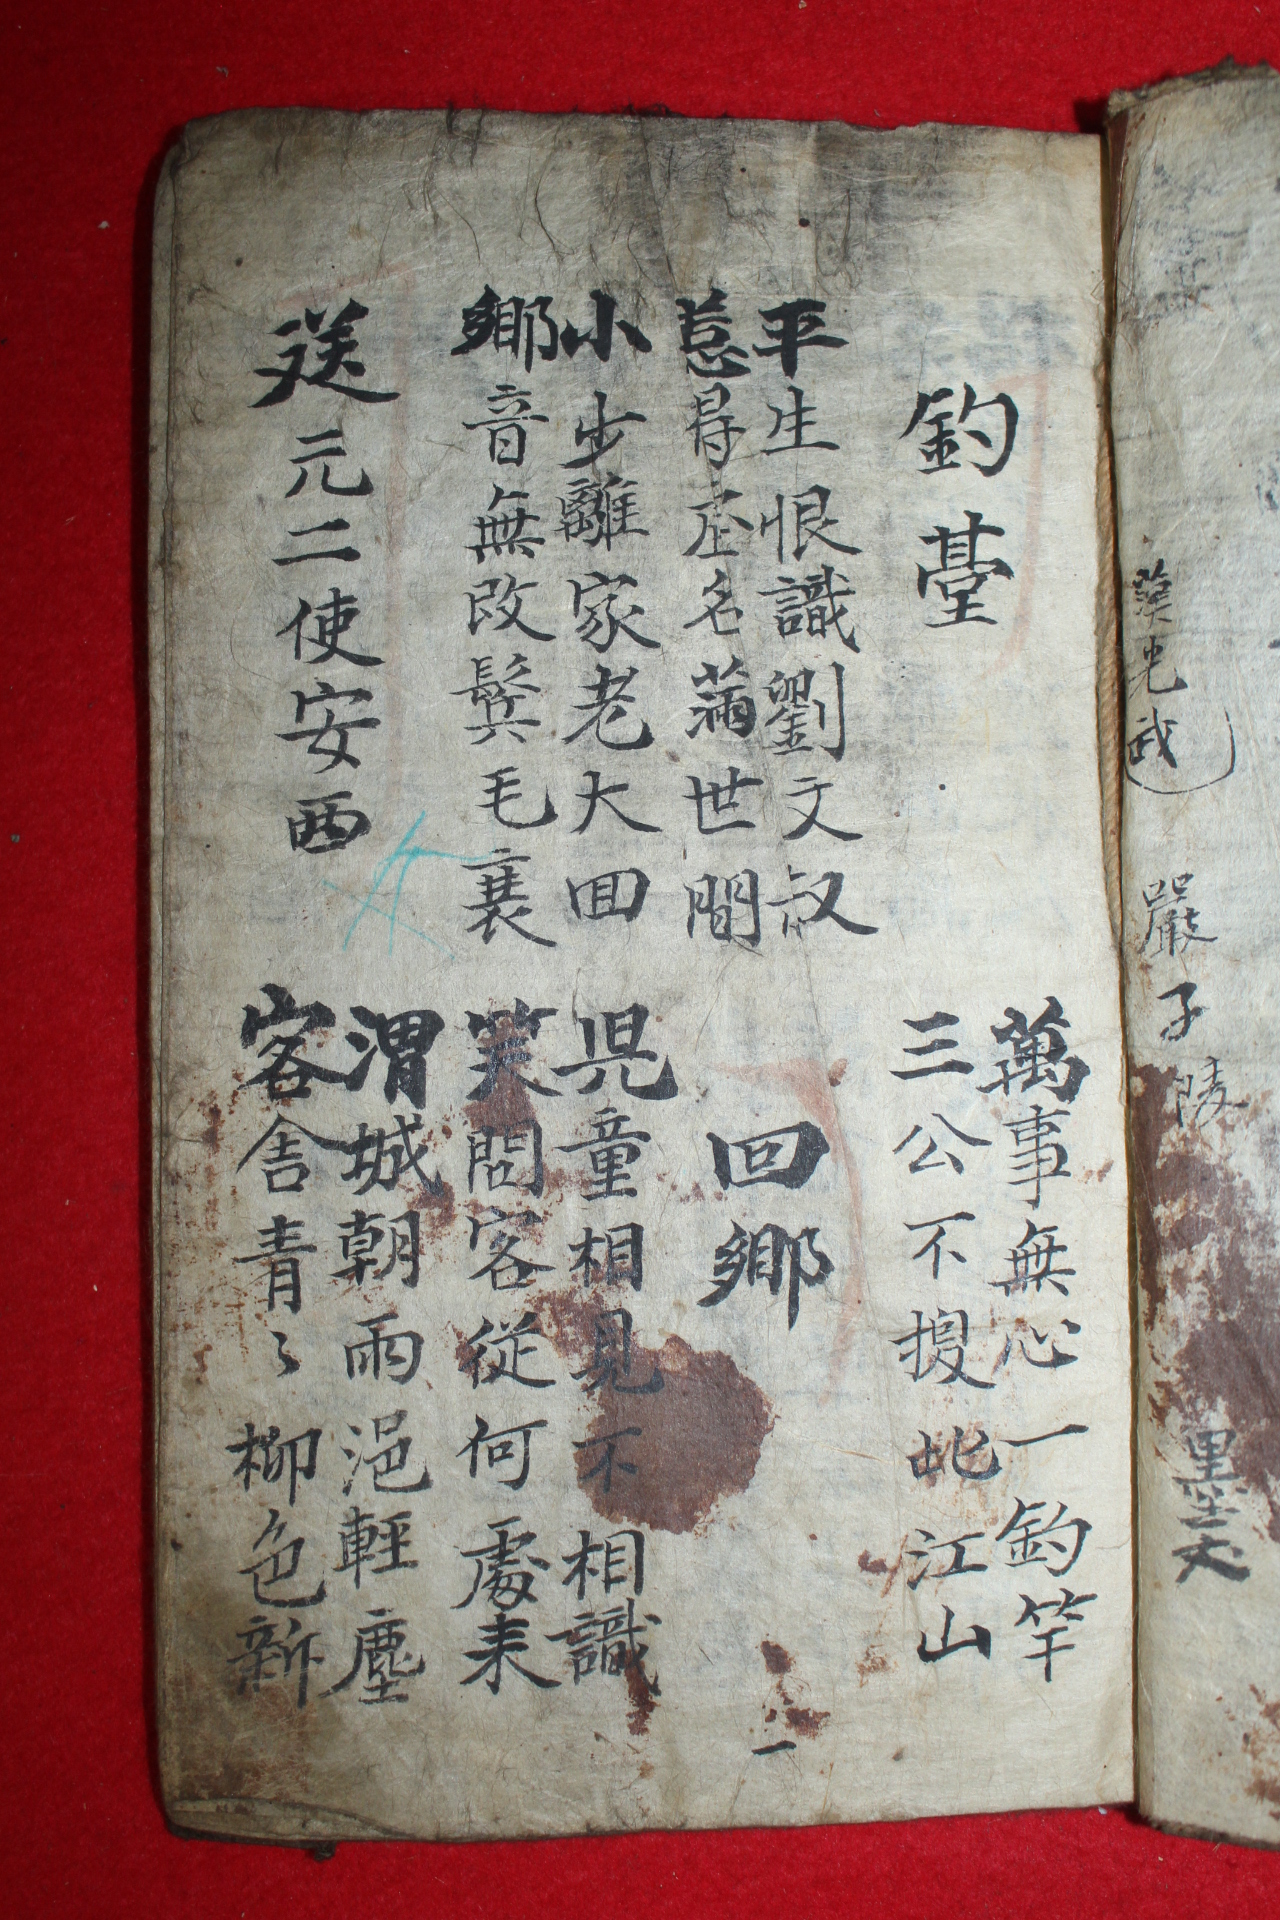 漢光武 嚴子陵
釣臺
萬事無心一釣竿
三公不換此江山
平生恨識劉文叔
惹得虛名滿世間
回鄉
小少離家老大回
鄉音無改鬢毛衰
児童相見不相識
笑問客從何處来
送元二使安西
渭城朝雨浥輕塵
客舍青々柳色新